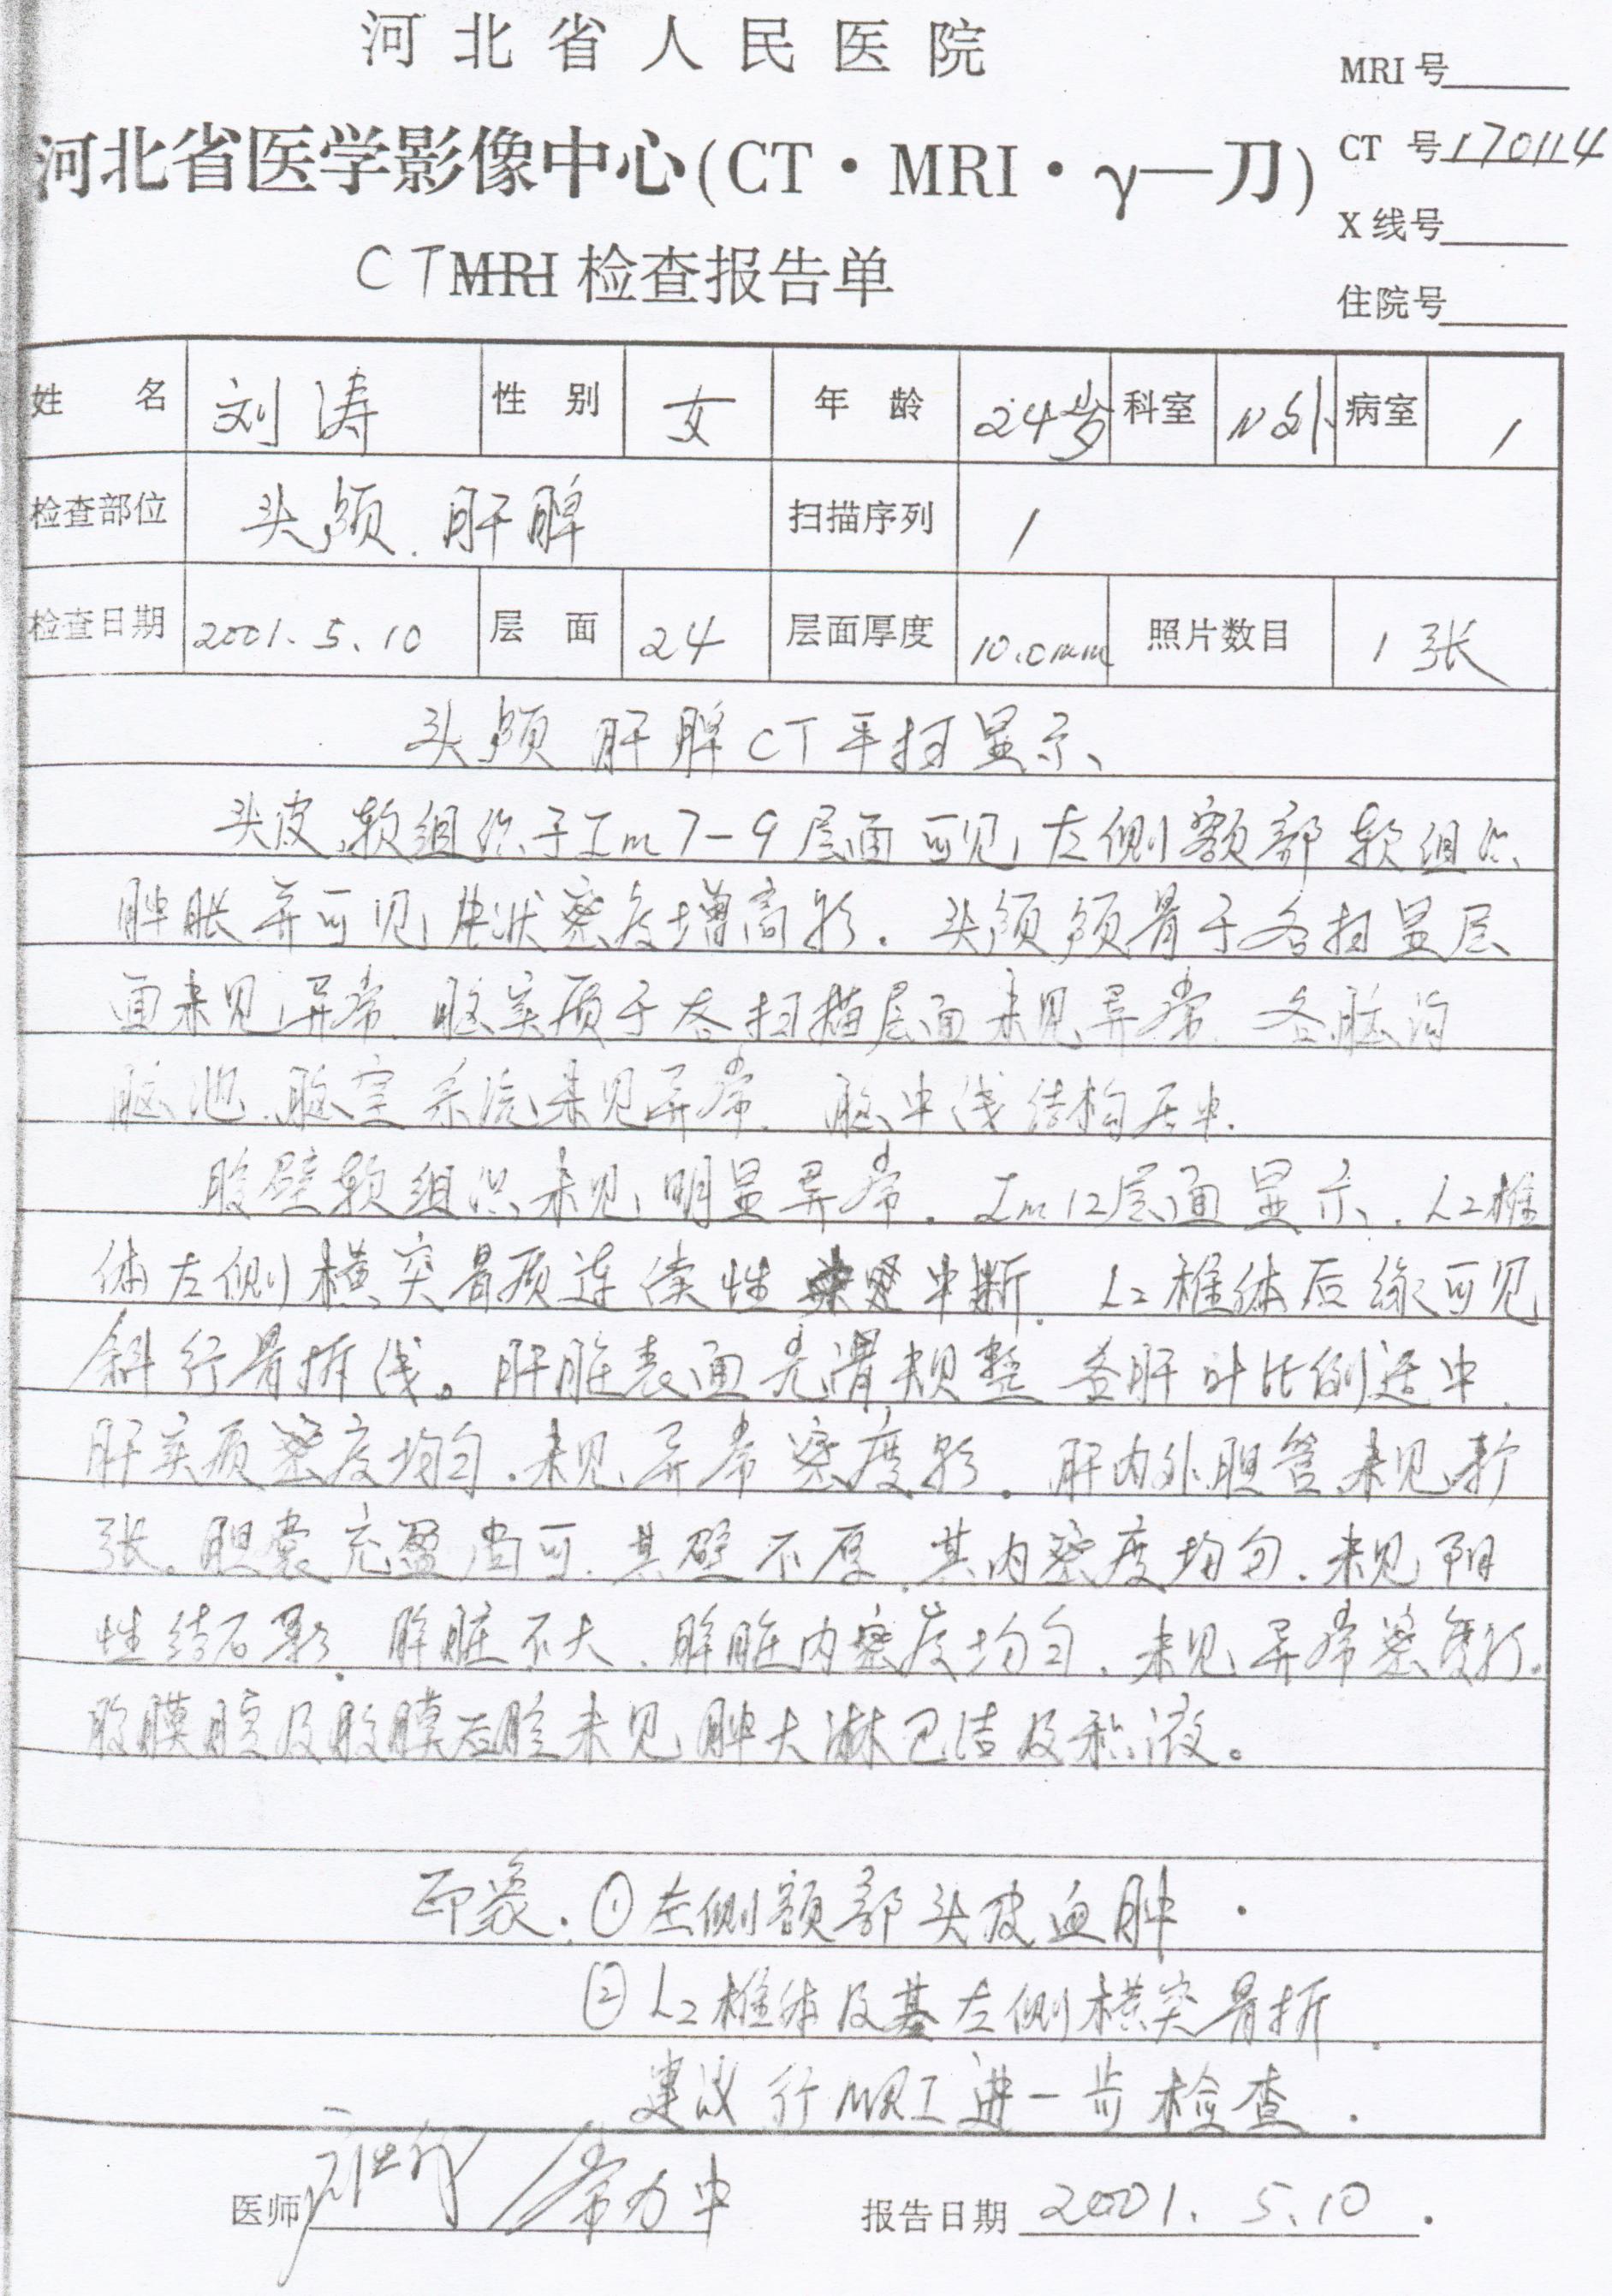 河北省人民医院
MRI 号
河北省医学影像中心(CT·MRI·γ—刀)
CT 号 170114
X 线号
CT MRI 检查报告单
住院号
姓 名 刘涛 性 别 女 年 龄 24岁 科室 N外 病室 1
检查部位 头颅.肝脾 扫描序列 1
检查日期 2001.5.10 层 面 24 层面厚度 10.0mm 照片数目 1张
头颅 肝脾CT平扫显示、
头皮、软组织于Im7-9层面可见左侧额部软组织
肿胀并可见片状密度增高影.头颅颅骨于各扫显层
面未见异常.脑实质于各扫描层面未见异常.各脑沟
脑池.脑室系统未见异常.脑中线结构居中.
腹壁软组织未见明显异常.Im12层面显示.L2椎
体左侧横突骨质连续性 中断.L2椎体后缘可见
斜行骨折线。肝脏表面光滑规整 各肝叶比例适中.
肝实质密度均匀.未见异常密度影.肝内外胆管未见扩
张。胆囊充盈尚可.其壁不厚.其内密度均匀.未见阳
性结石影.脾脏不大.脾脏内密度均匀.未见异常密度影.
腹膜腔及腹膜后腔未见肿大淋巴结及积液。
印象:①左侧额部头皮血肿.
②L2椎体及其左侧横突骨折.
建议行MRI进一步检查.
医师 / 常力中 报告日期 2001.5.10.